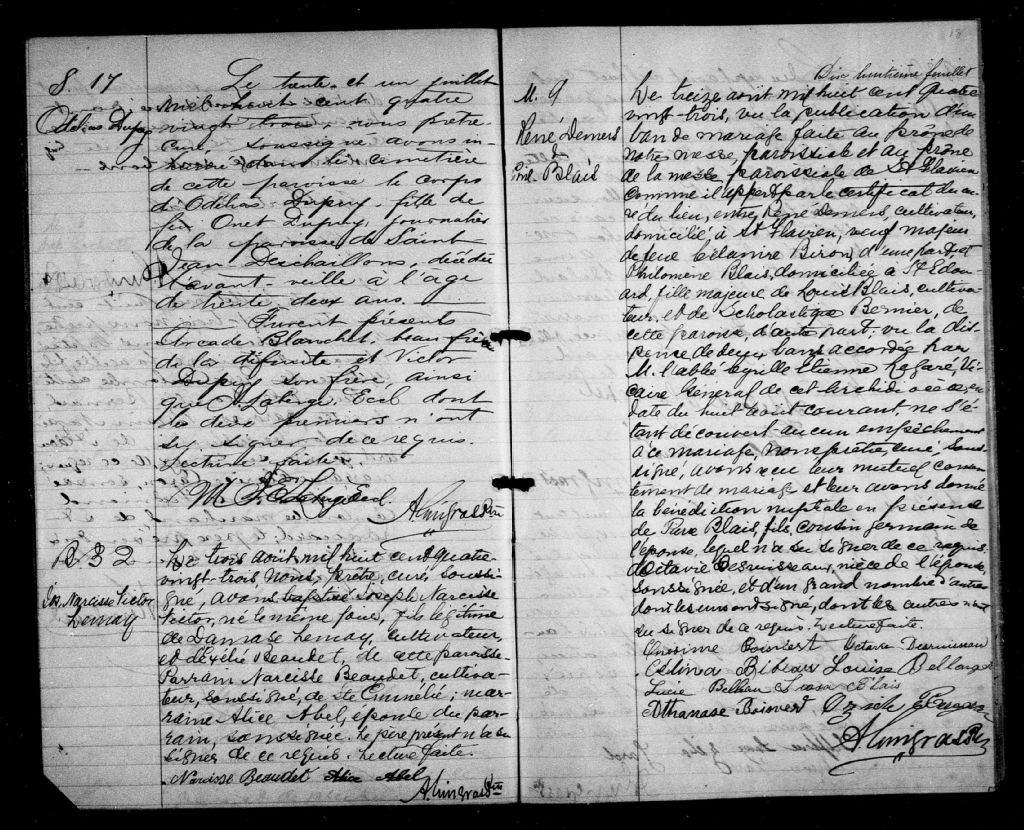 S. 17
Odélias Dupuy
Le trente et un juillet
mil huit cent quatre
vingt trois, nous prêtre
curé, soussigné avons in-
humé dans le cimetière
de cette paroisse le corps
d'Odélias Dupuy, fille de
feu Onet Dupuy, journalier
de la paroisse de Saint
Jean Deschaillons, décédée
l'avant-veille à l'age
de trente deux ans.
Furent présents
Arcade Blanchet, beau frère
de la défunte et Victor
Dupuy son frère, ainsi
que Ecil dont
les deux premiers n'ont
su signer de ce requis.
Lecture faite.
A. Gingras Ptre
B 32
Js. Narcisse Victor
Lemay
Le trois août mil huit cent quatre-
vingt-trois, nous, prêtre, curé, soussi-
gné, avons baptisé Joseph Narcisse
Victor, né le même jour, fils légitime
de Damase Lemay, cultivateur,
et d'Exélié Beaudet, de cette paroisse.
Parrain Narcisse Beaudet, cultiva-
teur, soussigné, de Ste Emmélie; mar-
raine Alice Abel, épouse du par-
rain, soussignée. Le père présent n'a su
signer de ce requis. Lecture faite.
Narcisse Beaudet Alice Abel
A. Gingras Ptre
18
Dix huitième feuillet
M. 9
René Demers
&
Phil. Blais
Le treize août mil huit cent quatre
vingt-trois, vu la publication d'un
ban de mariage faite au prône de
notre messe, paroissiale et au prône
de la messe paroissiale de St Flavien
comme il appert par le certificat du cu-
ré du lieu, entre René Demers, cultivateur,
domicilié à St Flavien, veuf majeur
de feue Célanire Biron, d'une part, et
Philomène Blais, domiciliée à St Edou-
ard, fille majeure de Louis Blais, cultiva-
teur, et de Scholastique Bernier, de
cette paroisse, d'autre part, vu la dis-
pense de deux bans accordée par
M. l'abbé Cyrille Etienne Légaré, Vi-
caire Général de cet Archidiocèse en
date du huit août courant, ne s'é-
tant découvert aucun empêchement
à ce mariage, nous, prêtre, curé, sous-
signé, avons reçu leur mutuel consen-
tement de mariage et leur avons donné
la bénédiction nuptiale en présence
de Blais, fils, cousin germain de
l'épouse, lequel n'a su signer de ce requis
d'Octavie Desruisseaux, nièce de l'épouse,
soussignée, et d'un grand nombre d'autres
dont les uns ont signé, dont les autres n'ont
su signer de ce requis. Lecture faite.
Onésime Boisvert Octavie Desruisseau
Célina Louisa Bellanger
Lucie Blais
Athanase Boisvert
A. Gingras Ptre